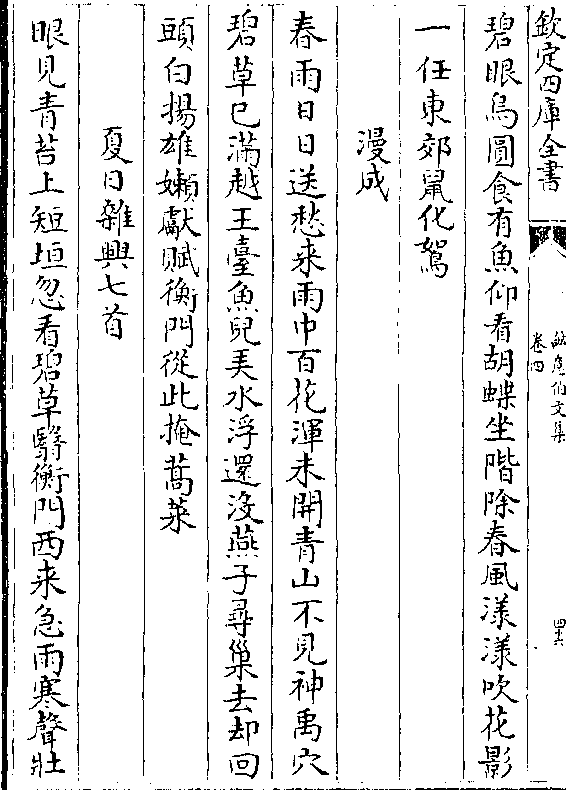 欽定四庫全書
卷四
四六
碧眼烏圓食有魚仰看胡蝶坐階除春風漾漾吹花影
一任東郊鼠化鴽
漫成
春雨日日送愁来雨中百花渾未開青山不見神禹穴
碧草已滿越王臺魚兒美水浮還没燕子尋巢去却回
頭白揚雄嬾獻賦衡門從此掩蒿萊
夏日雜興七首
眼見青苔上短垣忽看碧草翳衡門西来急雨寒聲壯